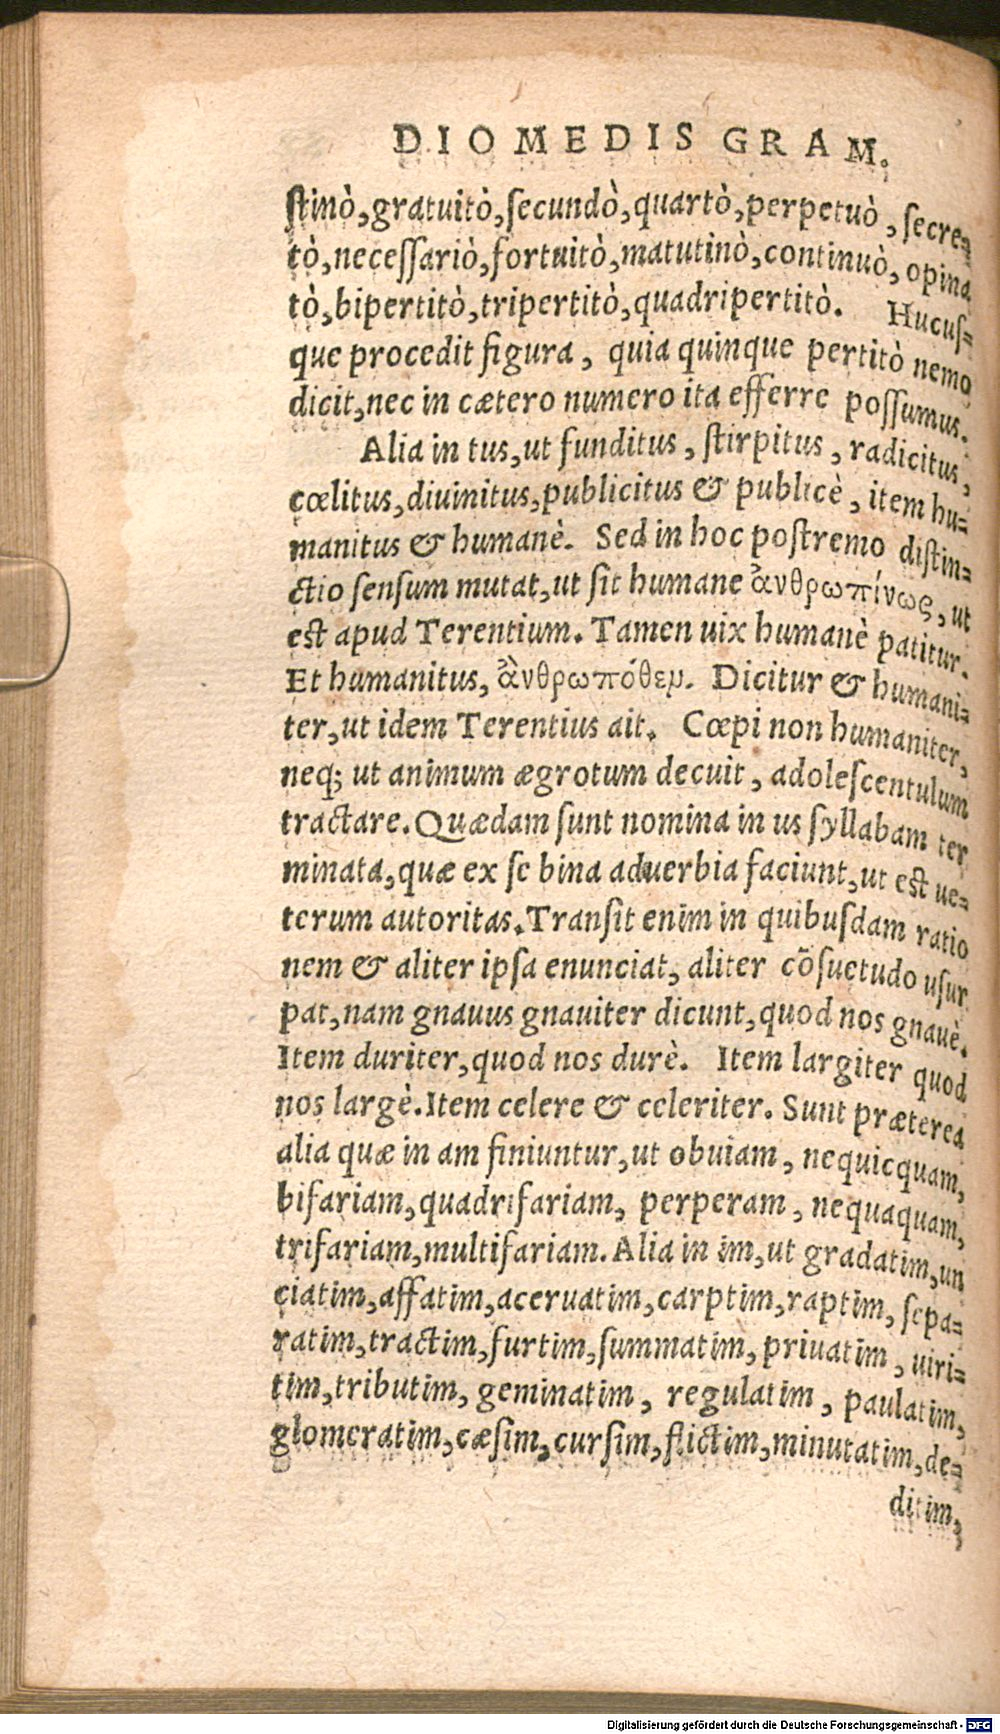 DIOMEDIS GRAM.
stinò, gratuitò, secundò, quartò, perpetuò, secre=
tò, necessariò, fortuitò, matutinò, continuò, opina
tò, bipertitò, tripertitò, quadripertitò. Hucus=
que procedit figura, quia quinque pertitò nemo
dicit, nec in cætero numero ita efferre possumus.
Alia in tus, ut funditus, stirpitus, radicitus,
cœlitus, diuinitus, publicitus & publicè, item hu=
manitus & humanè. Sed in hoc postremo distin=
ctio sensum mutat, ut sit humane ἀνθρωπίνως, ut
est apud Terentium. Tamen uix humanè patitur.
Et humanitus, ἀνθρωπόθεν. Dicitur & humani=
ter, ut idem Terentius ait. Cœpi non humaniter,
neq; ut animum ægrotum decuit, adolescentulum
tractare. Quædam sunt nomina in us syllabam ter
minata, quæ ex se bina aduerbia faciunt, ut est ue=
terum autoritas. Transit enim in quibusdam ratio
nem & aliter ipsa enunciat, aliter cõsuetudo usur
pat, nam gnauus gnauiter dicunt, quod nos gnauè.
Item duriter, quod nos durè. Item largiter quod
nos largè. Item celere & celeriter. Sunt præterea
alia quæ in am finiuntur, ut obuiam, nequicquam,
bifariam, quadrifariam, perperam, nequaquam,
trifariam, multifariam. Alia in im, ut gradatim, un
ciatim, affatim, aceruatim, carptim, raptim, sepa=
ratim, tractim, furtim, summatim, priuatim, uiri=
tim, tributim, geminatim, regulatim, paulatim,
glomeratim, cæsim, cursim, flictim, minutatim, de=
ditim,
Digitalisierung gefördert durch die Deutsche Forschungsgemeinschaft - DFG